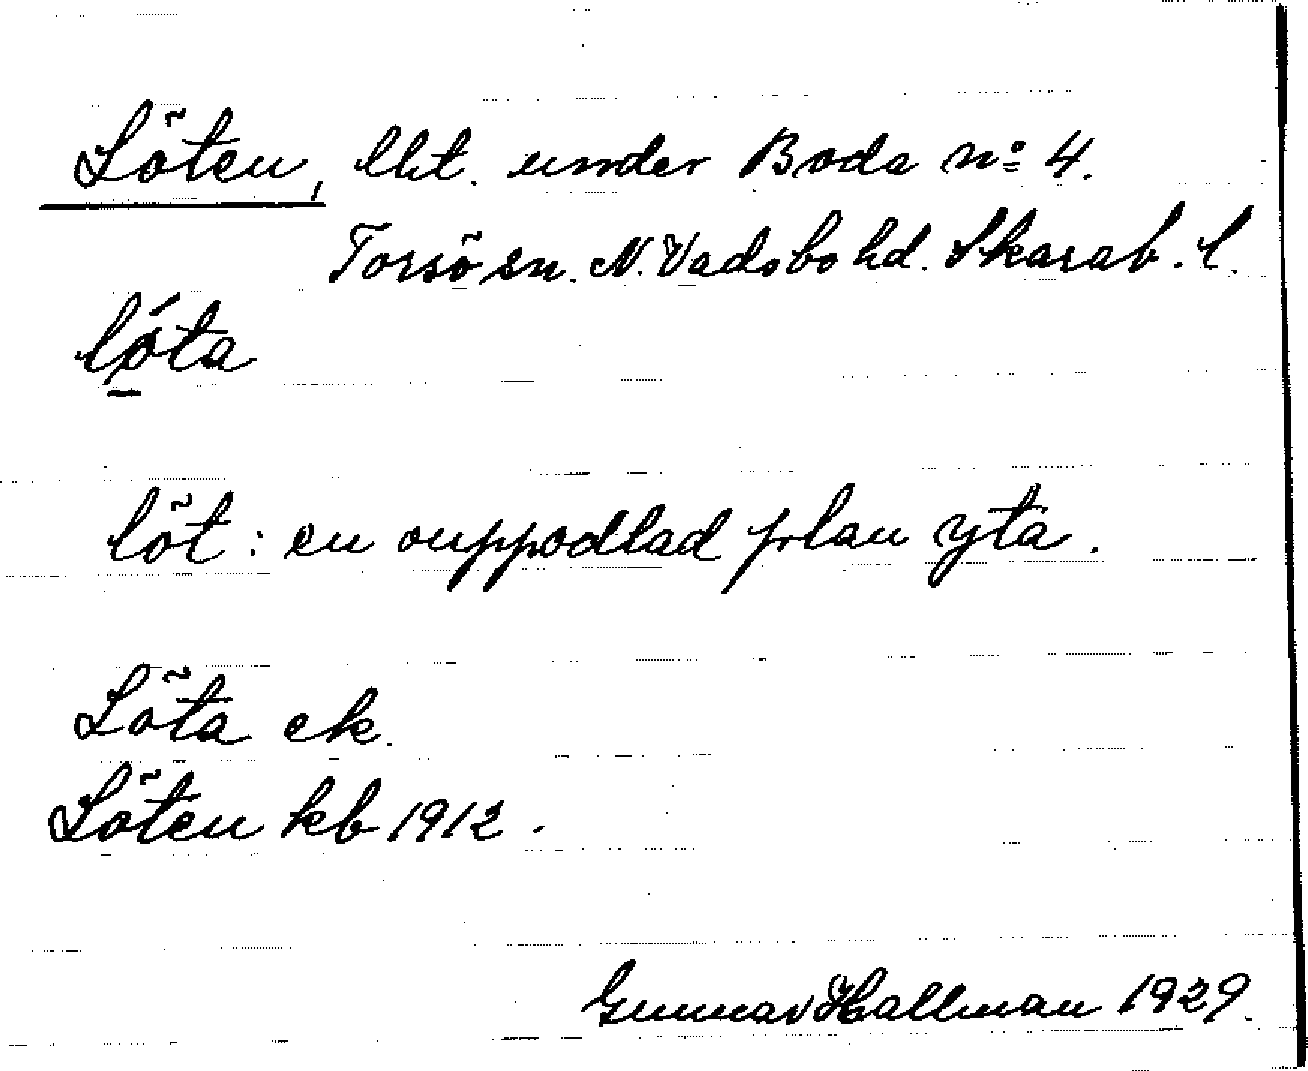 Löten, lht. under Boda nº 4.
Torsö sn. N. Vadsbo hd. Skarab. l.
lǿta
löt: en ouppodlad plan yta.
Löta ek.
Löten kb 1912.
Gunnar Hallman 1929.